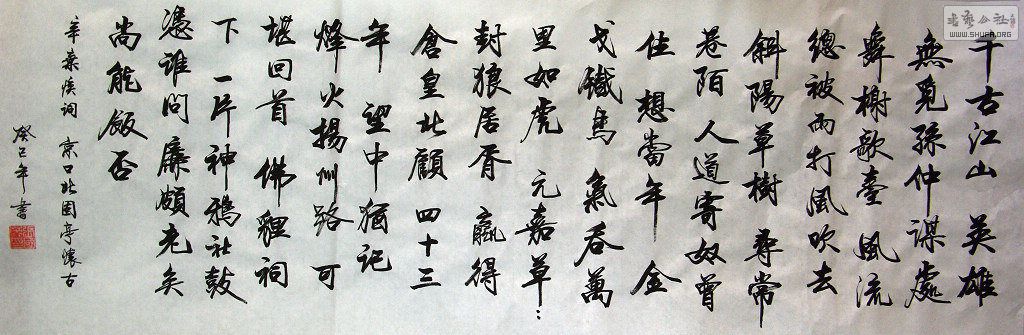 千古江山 英雄
無覓孫仲謀處
舞榭歌臺 風流
總被雨打風吹去
斜陽草樹 尋常
巷陌 人道寄奴曾
住 想當年 金
戈鐵馬 氣吞萬
里如虎 元嘉草:
封狼居胥 贏得
倉皇北顧 四十三
年 望中猶記
烽火揚州路 可
堪回首 佛狸祠
下 一片神鴉社鼓
憑誰問廉頗老矣
尚能飯否
辛棄疾詞 京口北固亭懷古
癸巳年 書
公社
WWW.SHUFA.ORG